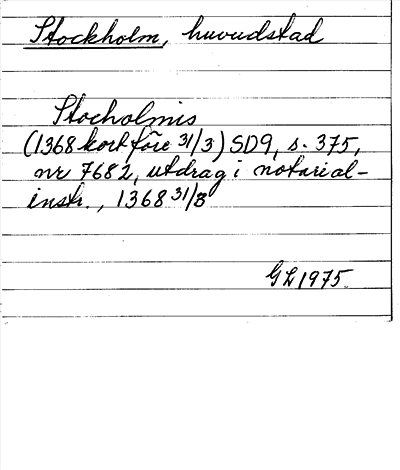 Stockholm, huvudstad
Stocholmis
(1368 kort före 31/3) SD9, s. 375,
nr 7682, utdrag i notarial-
instr., 1368 31/8
GL 1975